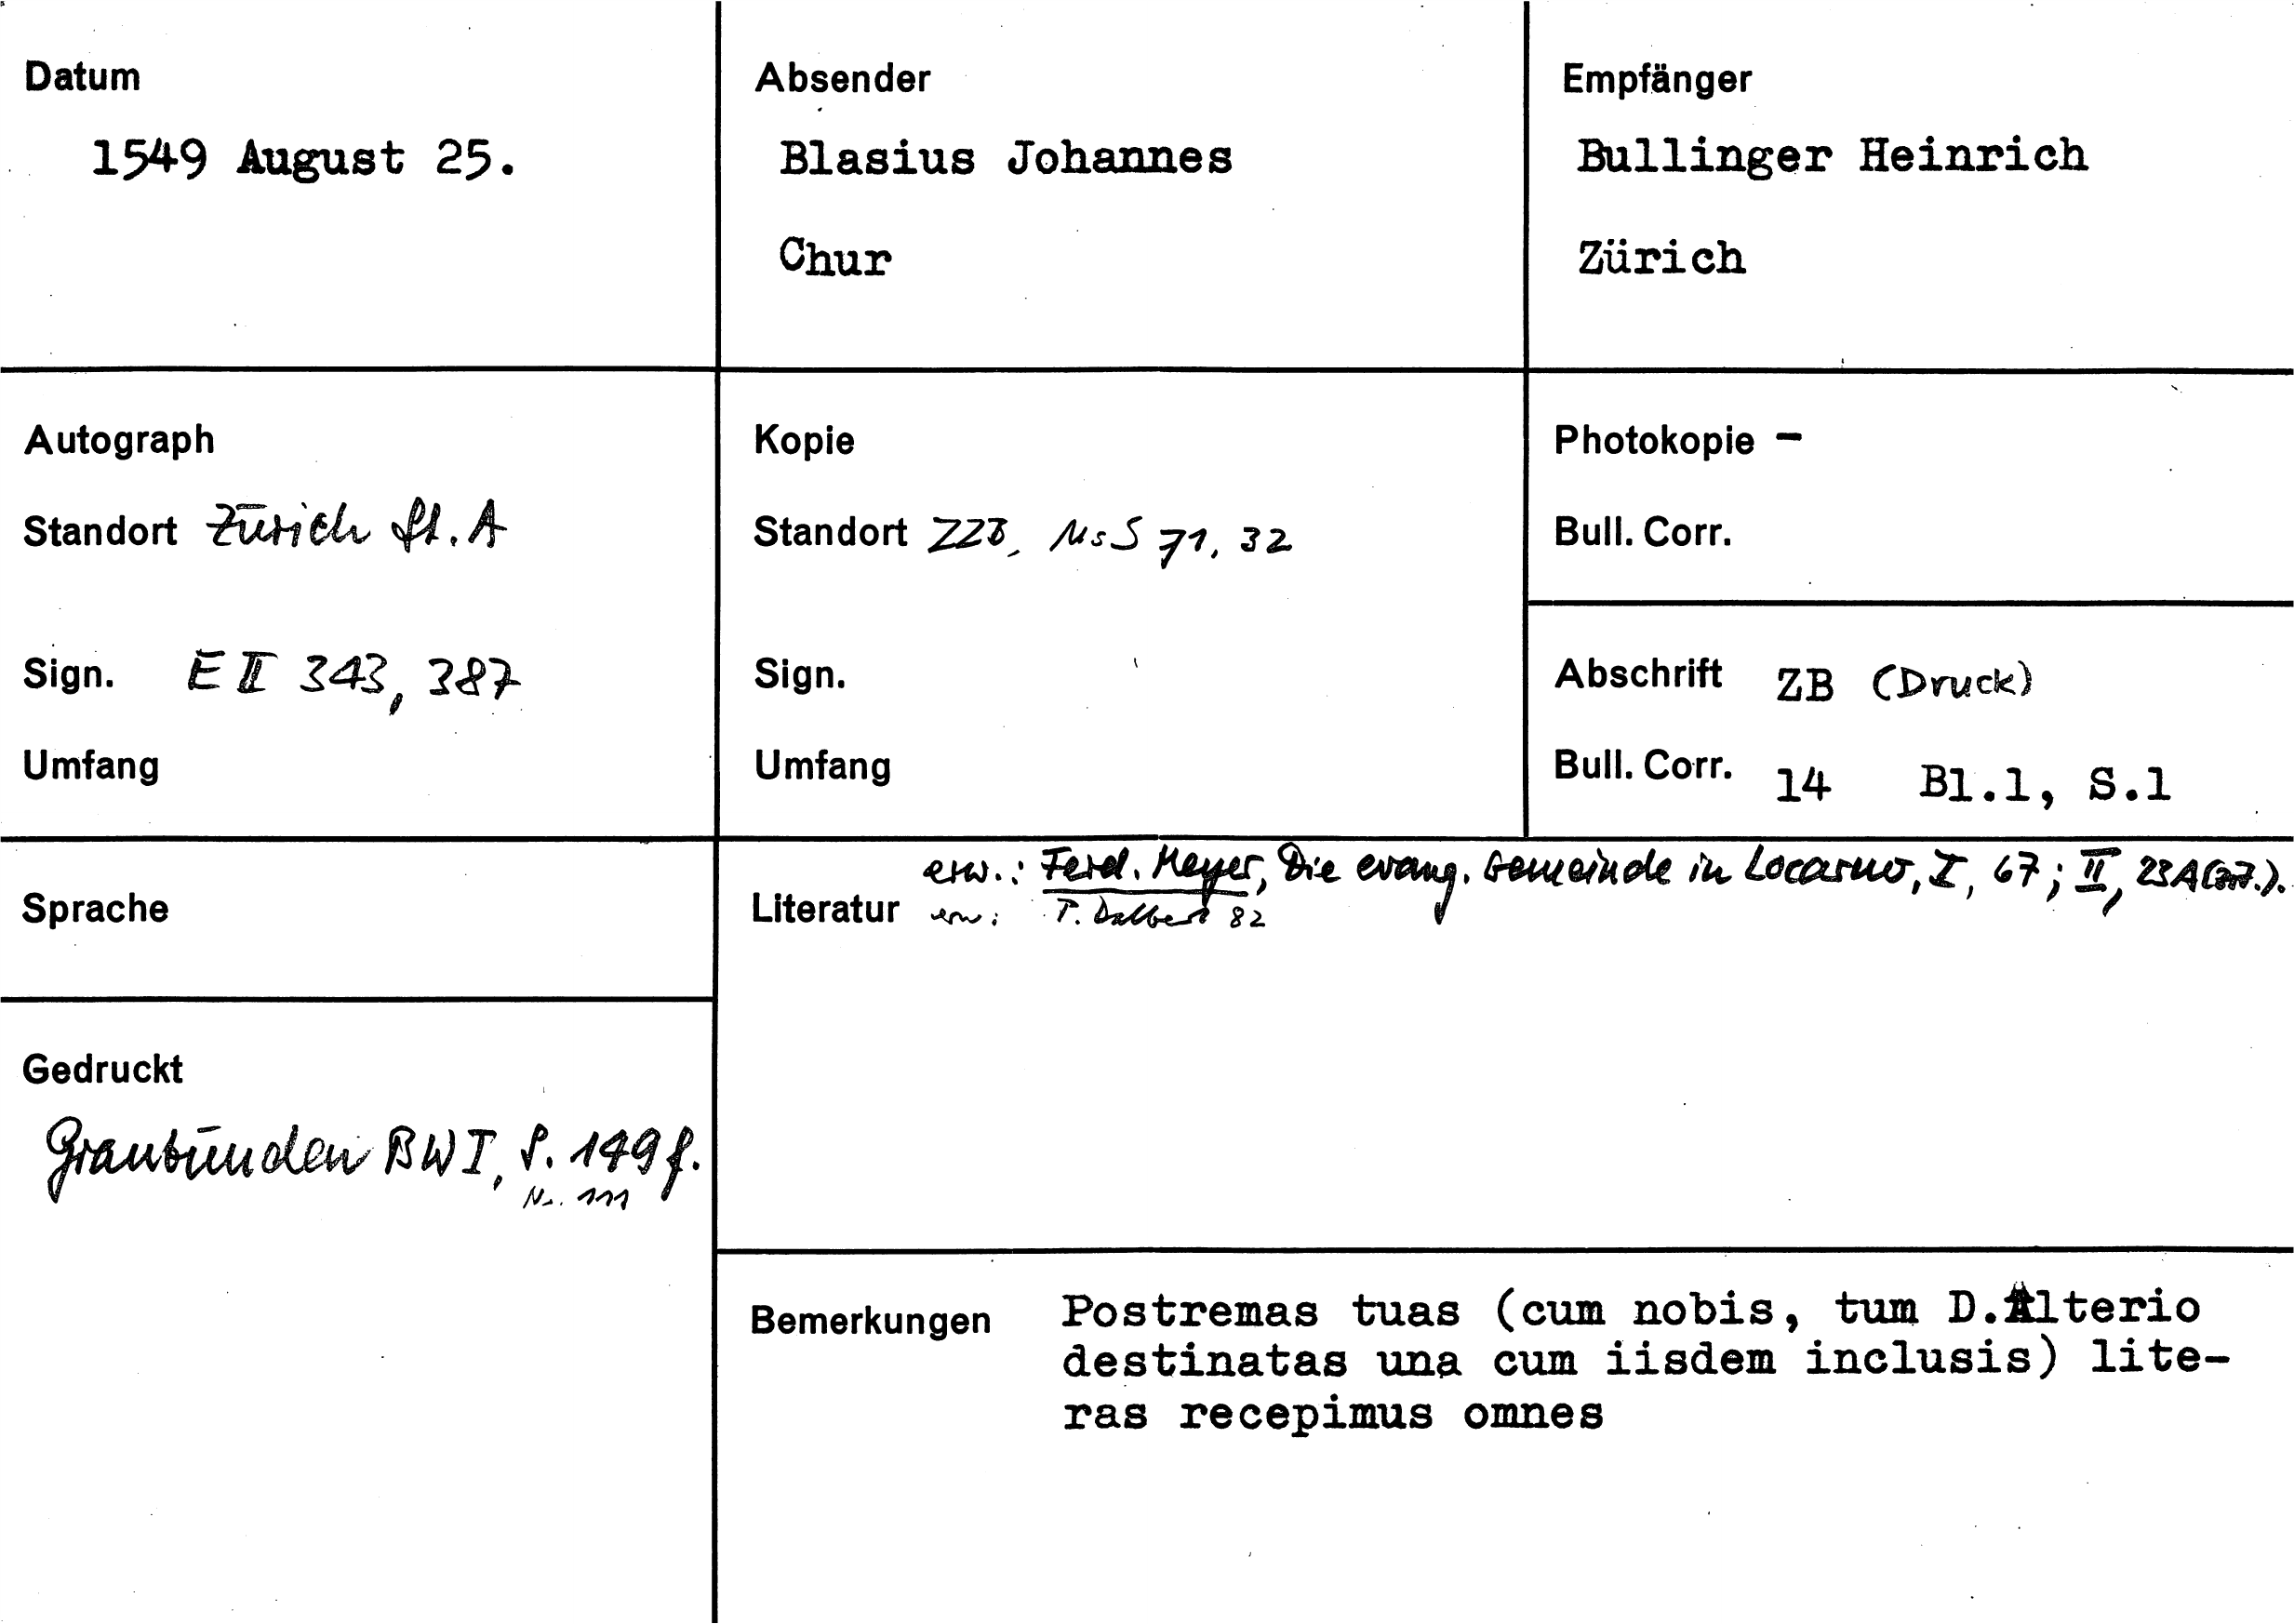 Datum
1549 August 25.
Absender
Blasius Johannes
Chur
Empfänger
Bullinger Heinrich
Zürich
Autograph
Standort Zürich St. A
Sign. E II 343, 387
Umfang
Kopie
Standort ZZB, Ms S 71, 32
Sign.
Umfang
Photokopie -
Bull. Corr.
Abschrift ZB (Druck)
Bull. Corr. 14 Bl.1, S.1
Sprache
Gedruckt
Graubünden BW I, S. 149 f.
Nr. 111
erw.: Ferd. Meyer, Die evang. Gemeinde in Locarno, I, 67; II, 23
Literatur erw: T. Dalbert 82
Bemerkungen Postremas tuas (cum nobis, tum D.Alterio
destinatas una cum iisdem inclusis) lite-
ras recepimus omnes